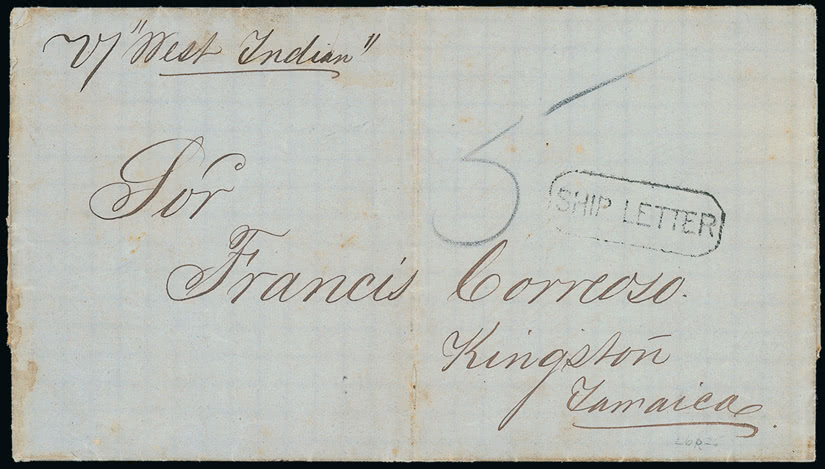 V/ "West Indian"
5
SHIP LETTER
Sor
Francis Correoso.
Kingston
Jamaica